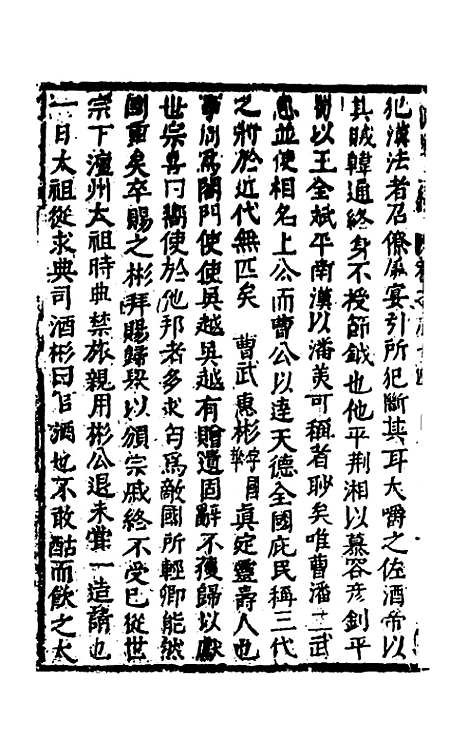 犯漢法者召僚屬宴引所犯斷其耳大嚼之佐酒帝以
其賊韓通終身不授節鉞也他平荆湘以慕容彦釗平
以王全斌平南漢以潘美可稱者眇矣唯曹潘二武
惠並使相名上公而曹公以達天德全國庇民稱三代
之將於近代無匹矣　曹武惠彬字國華真定靈壽人也
爲閤門使使吳越吳越有贈遺固辭不獲歸以獻
世宗曰嚮使於他邦者多求匄爲敵國所輕卿能然
國重矣卒賜之彬拜賜歸以頒宗戚終不受已從世
宗下澶州太祖時典禁旅親用彬公退未嘗一造請也
一日太祖從求典司酒彬曰官酒也不敢酤而飲之太